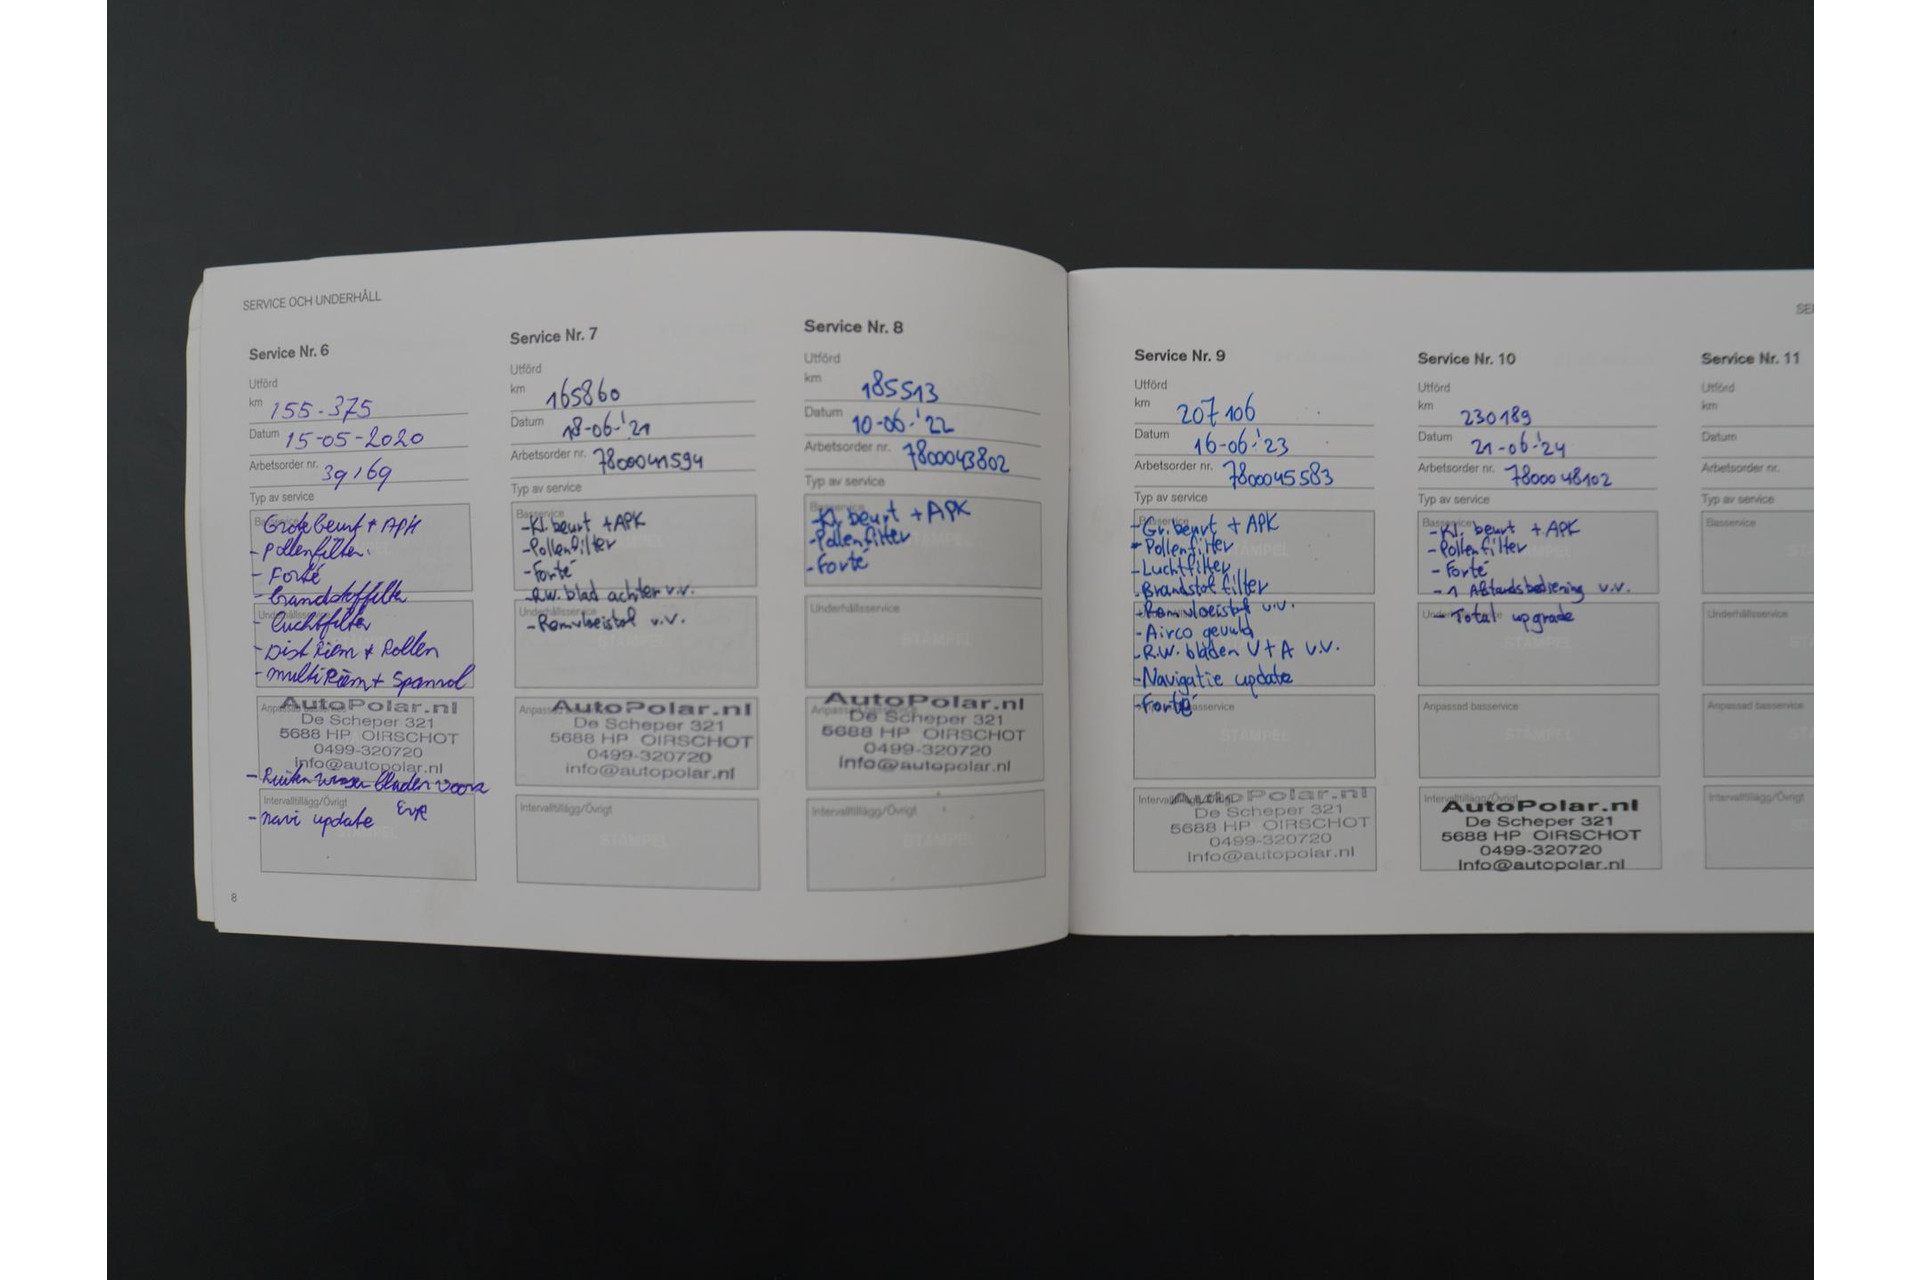 SERVICE OCH UNDERHÅLL
Service Nr. 6
Utförd
km 155.375
Datum 15-05-2020
Arbetsorder nr. 39169
Typ av service
Basservice
Grote beurt + APK
- Pollenfilter.
- Forté
- brandstoffilter
Underhållsservice
- luchtfilter
- Dist Riem + Rollen
- multi Riem + Spanrol
Anpassad basservice
AutoPolar.nl
De Scheper 321
5688 HP OIRSCHOT
0499-320720
info@autopolar.nl
- Ruiten wisser bladen voor
Intervalltillägg/Övrigt
- navi update
8
Service Nr. 7
Utförd
km 165860
Datum 18-06-'21
Arbetsorder nr. 7800041594
Typ av service
Basservice
STÄMPEL
- Kl. beurt + APK
- Pollenfilter
- Forté
- R.W. blad achter v.v.
Underhållsservice
- Remvloeistof v.v.
Anpassad basservice
AutoPolar.nl
De Scheper 321
5688 HP OIRSCHOT
0499-320720
info@autopolar.nl
Intervalltillägg/Övrigt
STÄMPEL
Service Nr. 8
Utförd
km 185513
Datum 10-06-'22
Arbetsorder nr. 7800043802
Typ av service
Basservice
- Kl. beurt + APK
- Pollenfilter
- Forté
Underhållsservice
STÄMPEL
Anpassad basservice
AutoPolar.nl
De Scheper 321
5688 HP OIRSCHOT
0499-320720
info@autopolar.nl
Intervalltillägg/Övrigt
STÄMPEL
Service Nr. 9
Utförd
km 207106
Datum 16-06-'23
Arbetsorder nr. 7800045583
Typ av service
Basservice
STÄMPEL
- Gr. beurt + APK
- Pollenfilter
- Luchtfilter
- Brandstof filter
- Remvloeistof v.v.
- Airco gevuld
- R.W. bladen V + A v.v.
- Navigatie update
- Forté
basservice
STÄMPEL
Intervalltillägg/Övrigt
AutoPolar.nl
De Scheper 321
5688 HP OIRSCHOT
0499-320720
info@autopolar.nl
Service Nr. 10
Utförd
km 230189
Datum 21-06-'24
Arbetsorder nr. 7800048102
Typ av service
Basservice
- Kl. beurt + APK
- Pollenfilter
- Forté
- 1 Afstandsbediening v.v.
Underhållsservice
- Total upgrade
STÄMPEL
Anpassad basservice
STÄMPEL
Intervalltillägg/Övrigt
AutoPolar.nl
De Scheper 321
5688 HP OIRSCHOT
0499-320720
info@autopolar.nl
SE
Service Nr. 11
Utförd
km
Datum
Arbetsorder nr.
Typ av service
Basservice
Underhållsservice
Anpassad basservice
Intervalltillägg/Övrigt